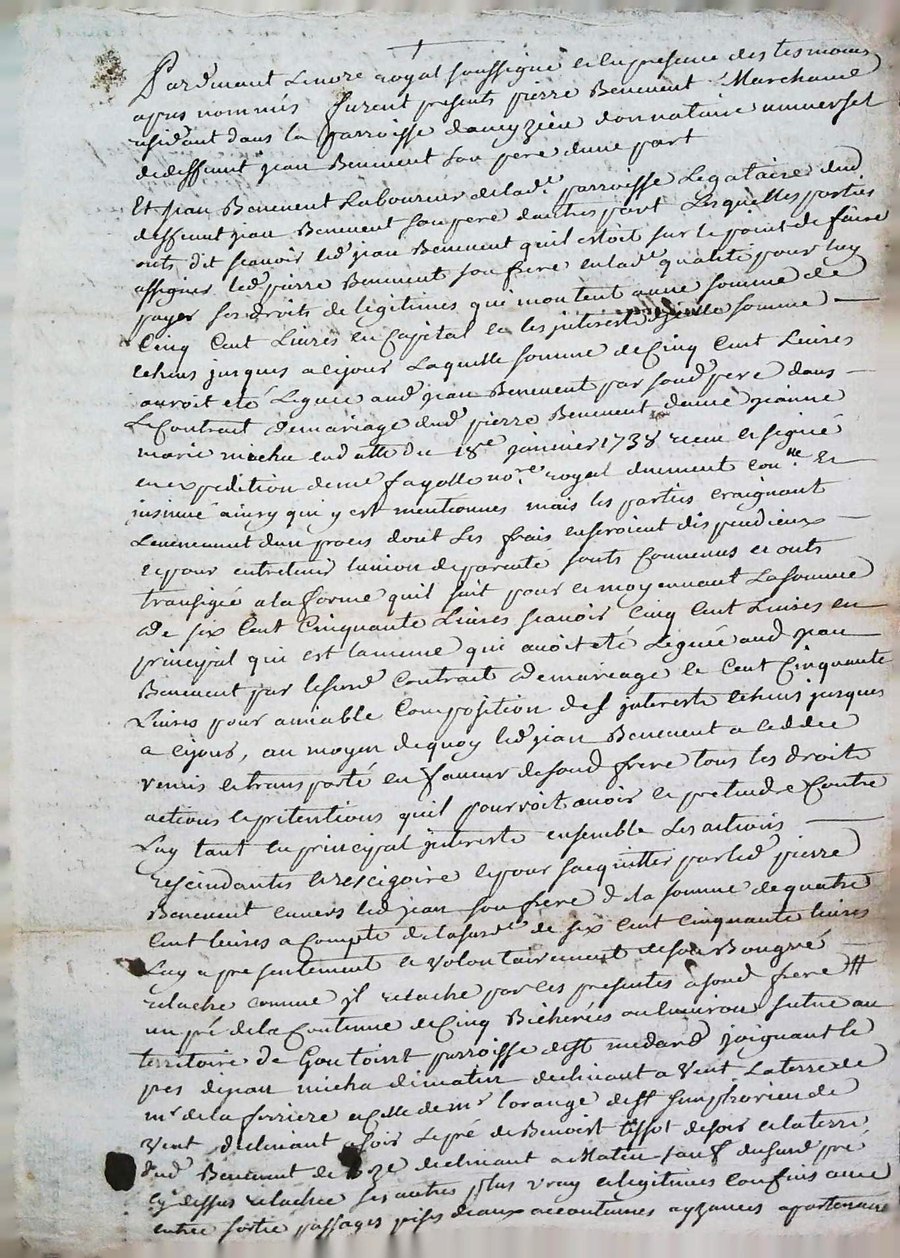 Pardevant Le nore royal soussigné et en presence des tesmoins
apres nommés furent presents pierre Benevent Marchand
residant dans la parroisse daveyzieu donnataire universel
de deffunt jean Benevent son pere dune part
Et jean Benevent Laboureur de lad.e parroisse Legataire dud
deffunt jean Benevent son pere dautre part Lesquelles parties
ont dit scavoir led jean Benevent quil estoit sur le point de faire
assigner led pierre Benevent son frere en lad.e qualité pour luy
payer ses droits de legitimes que montent a une somme de
Cinq Cent Livres en Capital et les interest dicelle somme
echeus jusques a cejour Laquelle somme de Cinq Cent Livres
auroit eté Leguée aud jean Benevent par soud pere dans
Le Contract de mariage dud pierre Benevent & jeanne
marie en datte du 18.e janvier 1738 receu et signé
en expedition de me fayolle no.re royal duement con.llé Et
insinué ainsy qui y est mentionnés mais les parties craignant
Levenement dun proces dont Les frais en seroient dispendieux
et pour entretenir lunion de parenté sonts Convenus et onts
transigée a la forme quil suit pour et moyennant La somme
de six Cent Cinquante Livres scavoir Cinq Cent Livres en
principal qui est la meme qui avoit eté Leguée aud jean
Benevent par le susd Contract de mariage et Cent Cinquante
Livres pour amiable Composition des interests echeus jusques
a cejour, au moyen de quoy led jean Benevent a ceddé
remis et transporté en faveur de soud frere tous les droits
actions et pretentions quil pourroit avoir et pretendre Contre
Luy tant en principal interests ensemble Les actions
rescindantes et rescizoire et pour sacquitter par led pierre
Benevent envers led jean son frere de la somme de quatre
Cent livres a Compte de lasusd.e de six Cent Cinquante livres
Luy a presentement et volontairement de son Bongré
relaché comme jl relache par ces presentes a soud frere #
un pré de la Contenue de Cinq Bicherées ou environ scitué au
territoire de parroisse de St medard joignant le
pré de jean micha de matin declinant a vent La terre de
mr de la ferriere et Celle de mr lorange de St simphorien de
vent declinant a soir Le pré de Benoist tissot de soir et la terre
dud Benevent de Bize declinant a Matin sauf dususd pré
cy dessus relachée ses autres plus vrays et legitimes Confins avec
entrée sortie passages prises deaux accoutumés ayzances apartenance